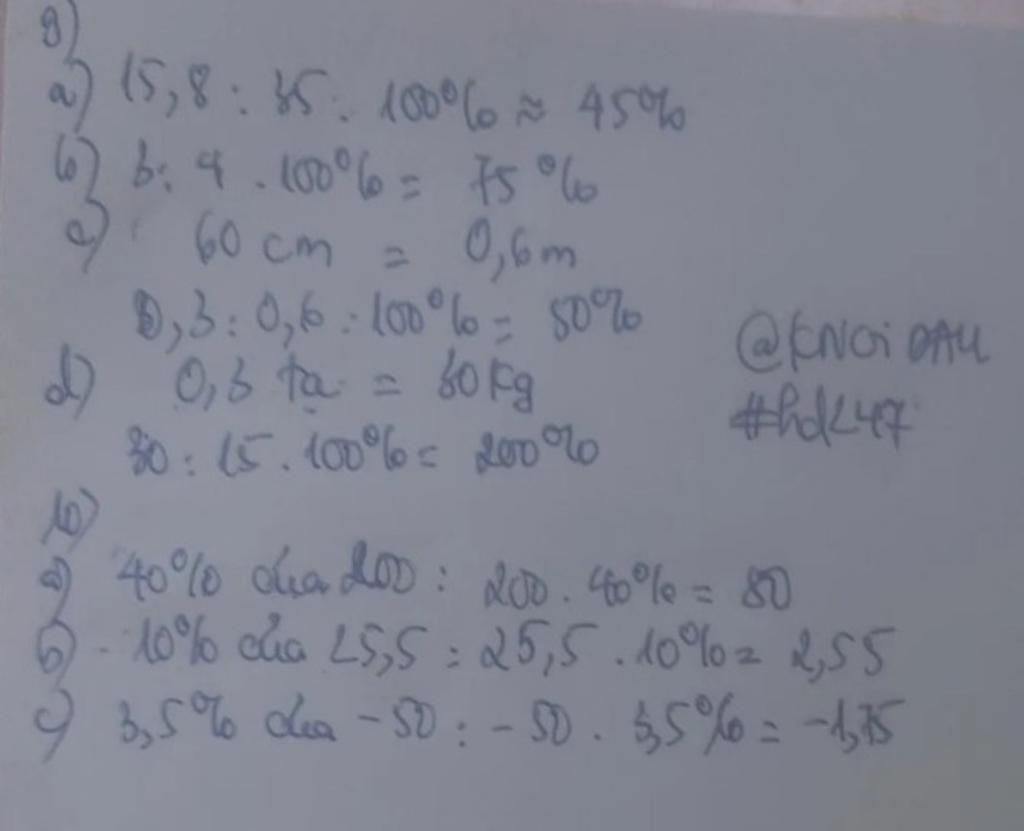 9)
a) 15,8 : 35 . 100% ≈ 45%
b) 3 : 4 . 100% = 75%
c) 60 cm = 0,6m
0,3 : 0,6 . 100% = 50%
d) 0,3 tạ = 30kg
30 : 15 . 100% = 200%
@KNGiDAU
#hdz47
10)
a) 40% của 200 : 200 . 40% = 80
b) 10% của 25,5 : 25,5 . 10% = 2,55
c) 3,5% của -50 : -50 . 3,5% = -1,75